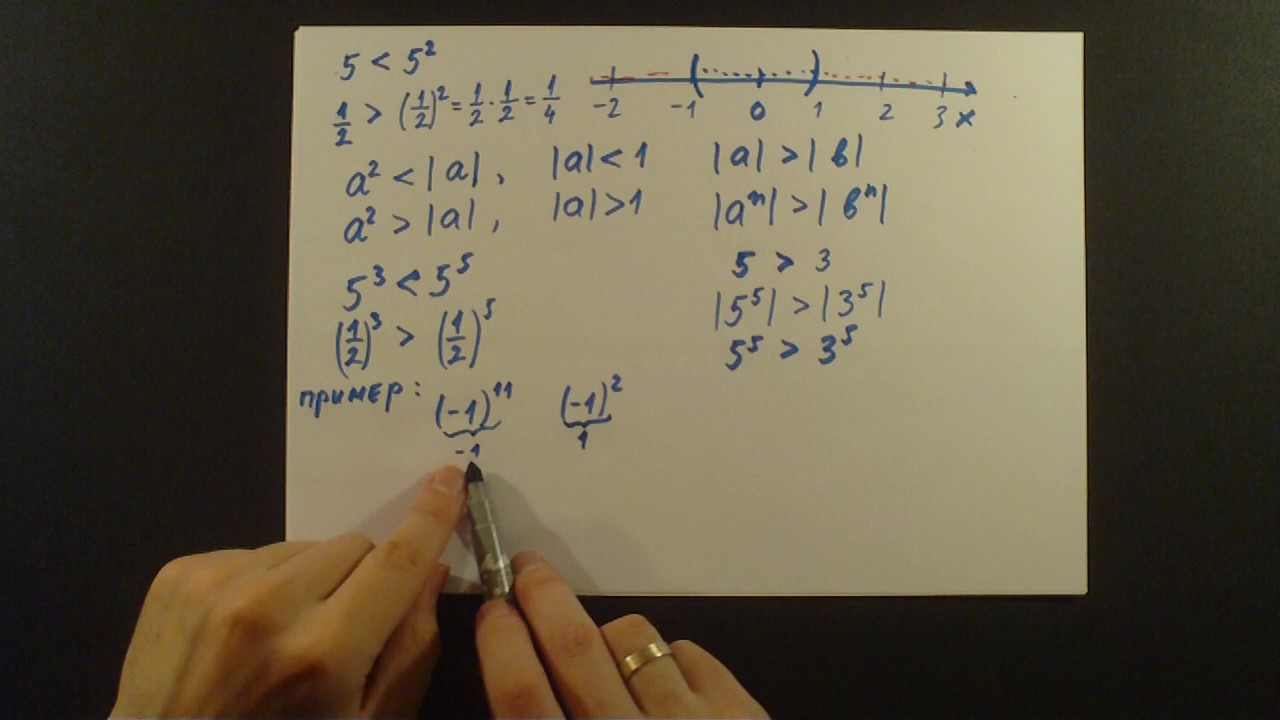 5 < 5²
1/2 > (1/2)² = 1/2 · 1/2 = 1/4
-2 -1 0 1 2 3 x
a² < |a|, |a| < 1
a² > |a|, |a| > 1
5³ < 5⁵
(1/2)³ > (1/2)⁵
|a| > |в|
|aⁿ| > |вⁿ|
5 > 3
|5⁵| > |3⁵|
5⁵ > 3⁵
пример: (-1)¹¹ (-1)²
-1 1